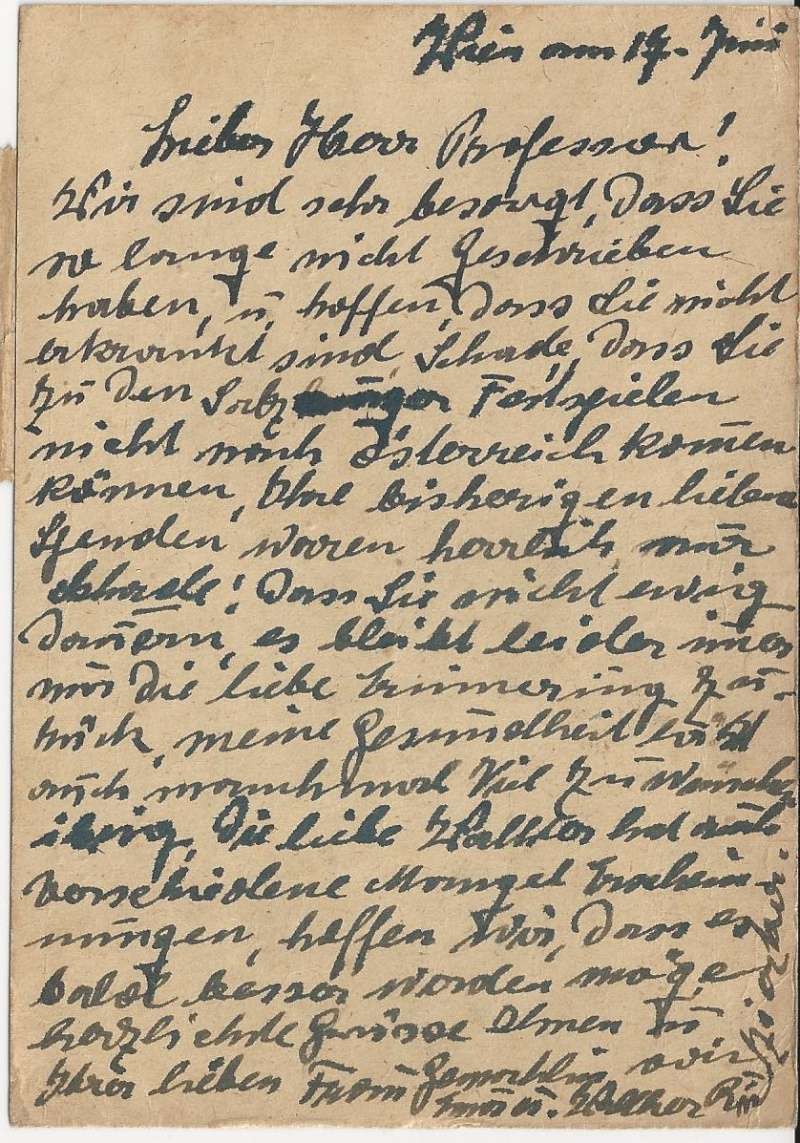 Wien am 17. Juni
Lieber Herr Professor!
Wir sind sehr besorgt, dass Sie
so lange nicht geschrieben
haben, u. hoffen, dass Sie nicht
erkrankt sind, Schade, dass Sie
zu den Salzburger Festspielen
nicht nach Österreich kom̅en
können, Ihre bisherigen lieben
Spenden waren herrlich nur
schade! Dass Sie nicht ewig
dauern, es bleibt leider im̅er
nur die liebe Erinnerung zu-
rück, meine Gesundheit läßt
auch manchmal Viel zu wünschen
übrig, Die liebe hat auch
verschiedene Mangel Erschein-
nungen, hoffen wir, dass es
bald besser werden möge,
herzlichste Grüsse Ihnen u
Ihrer lieben Frau Gemahlin